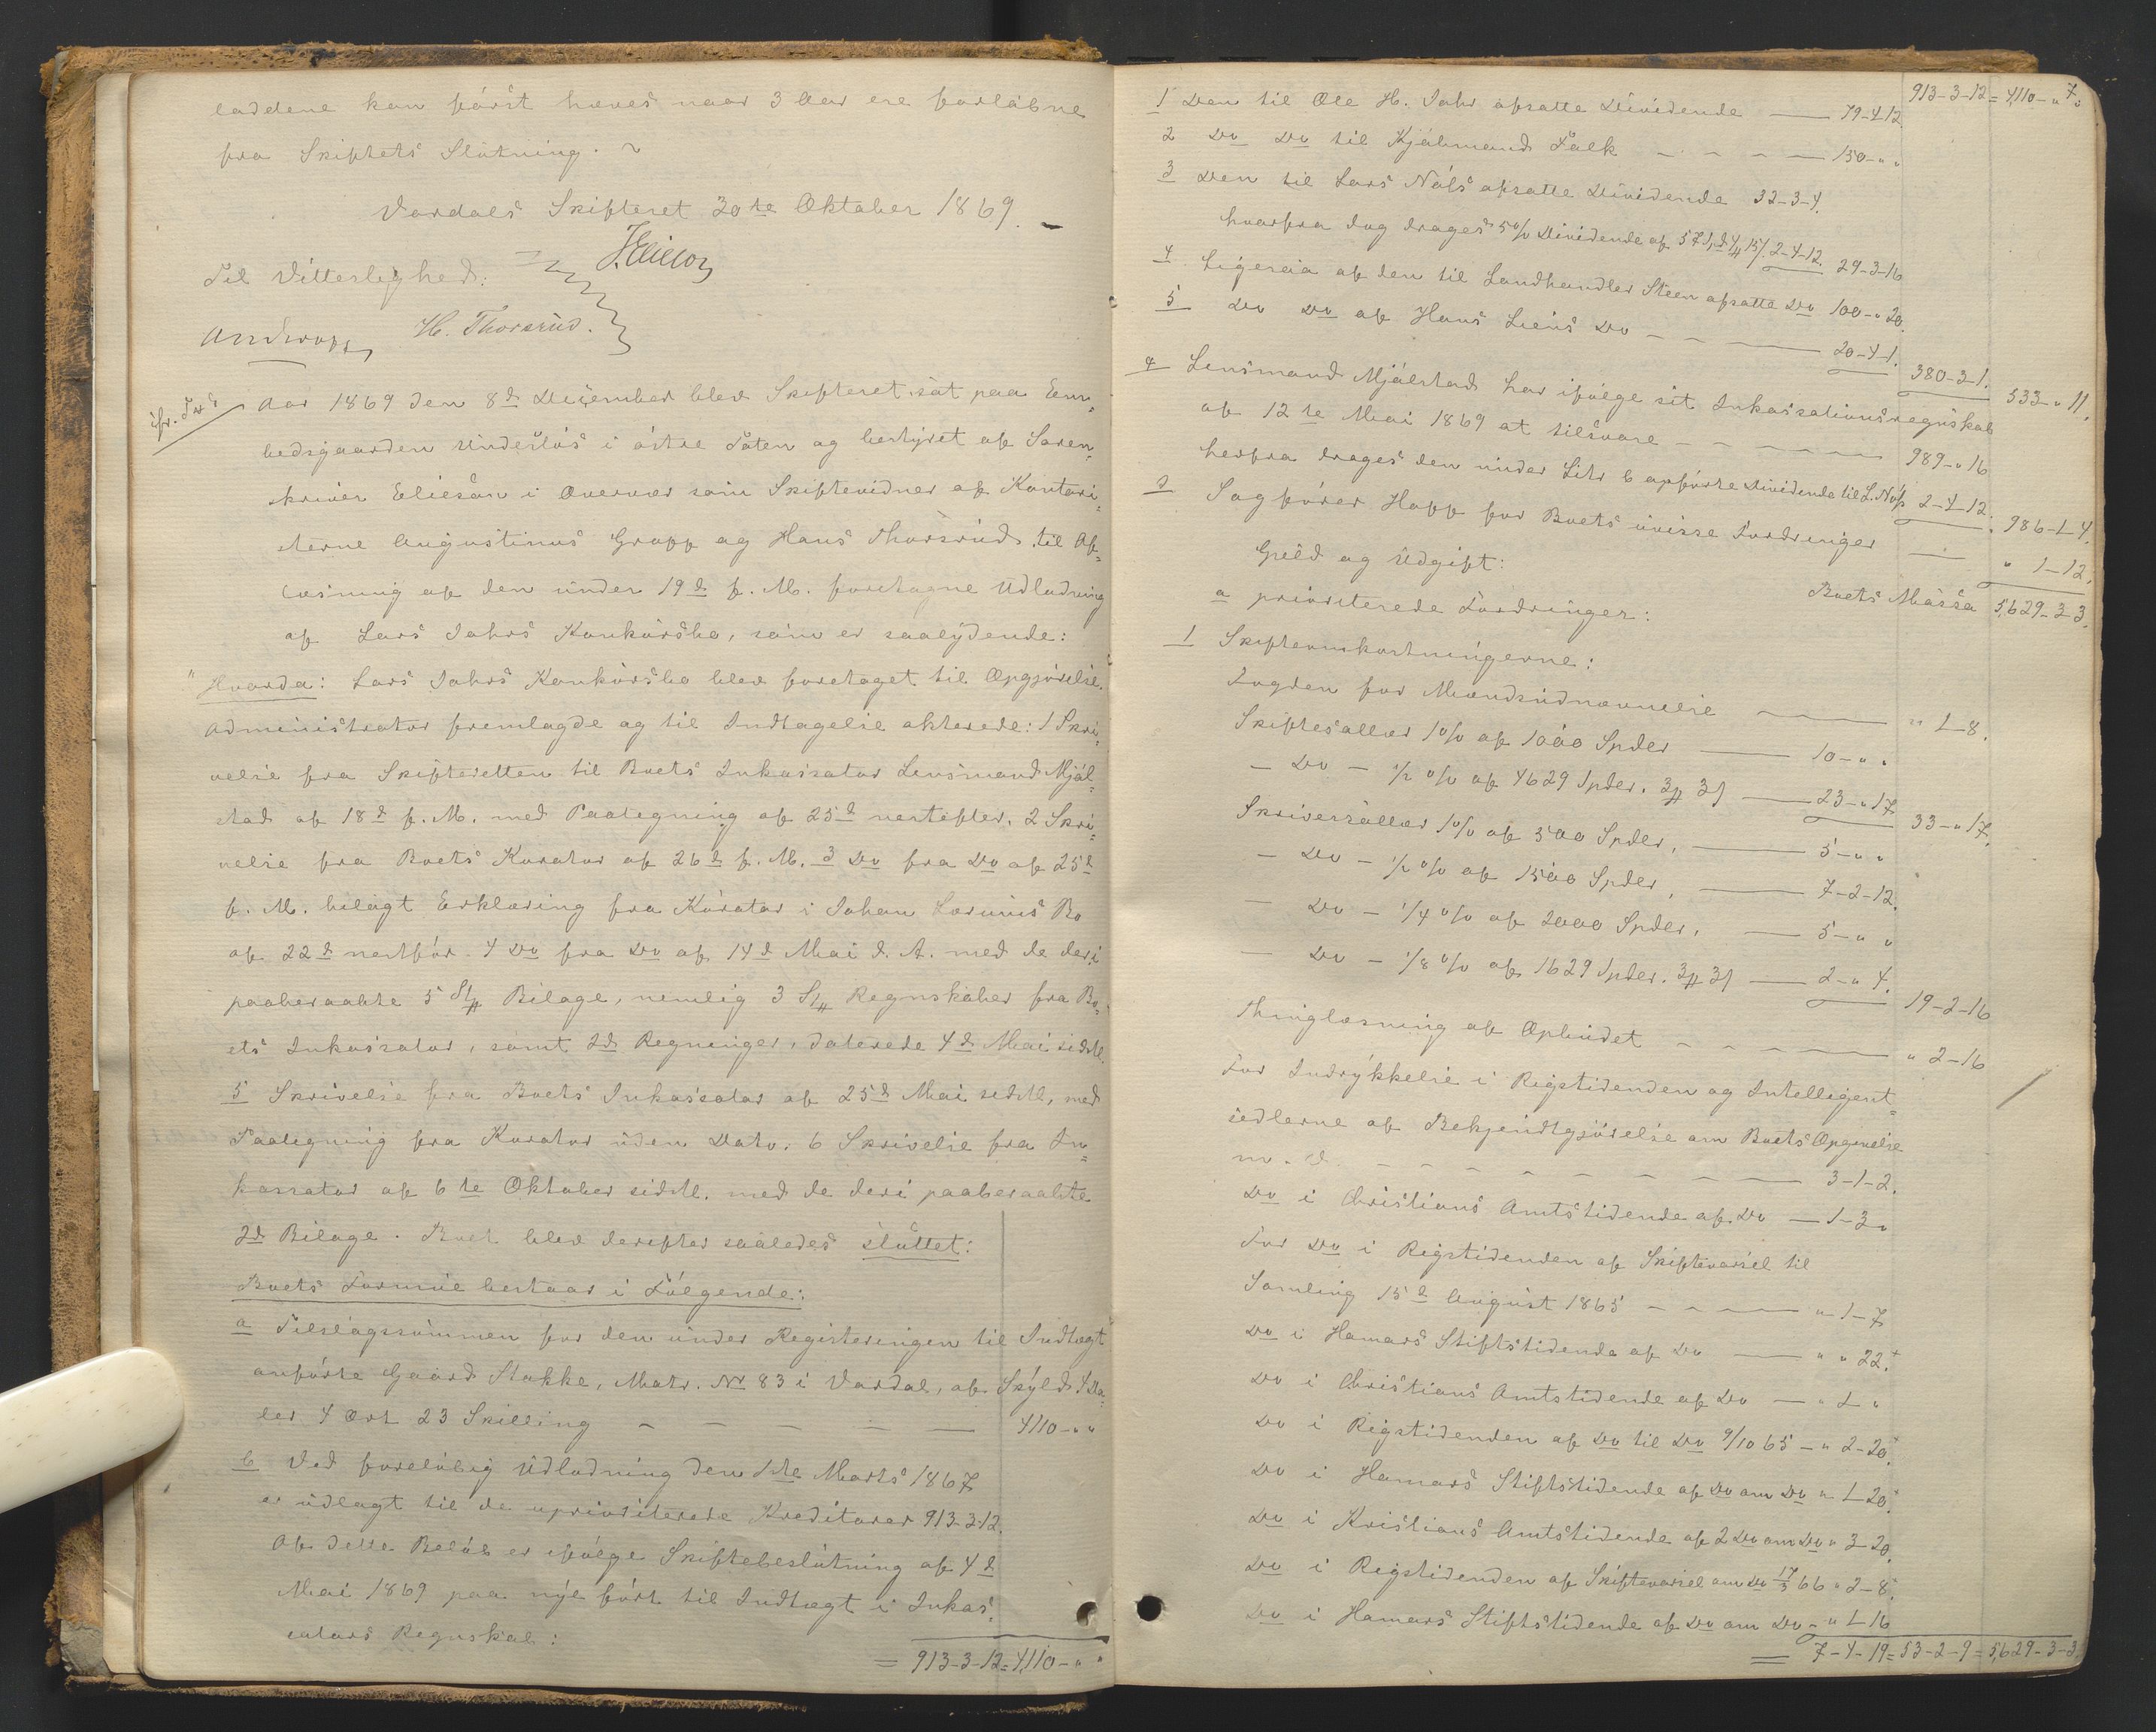 laddene kan först hæves naar 3 Aar ere forløbne
fra Skiftets Slutning. ~
Vardals Skifteret 30te Oktober 1869. –
JEliesøn
Til Vitterlighed:
H. Thorsrud.
Aar 1869 den 8d December blev Skifteret sat paa Em-
bedsgaarden Underlös i östre Toten og bestyret af Soren-
skriver Eliesön i Overvær som Skiftevidner af Kontori-
sterne Augustinus Gropp og Hans Thorsrud, til Af-
læsning af den under 19d f. M. foretagne Udlodning
af Lars Jahrs Konkursbo, som er saalydende:
"Hvorda: Lars Jahrs Konkursbo blev foretaget til Opgjörelse.
Administrator fremlagde og til Indtagelse akterede: 1 Skri-
velse fra Skifteretten til Boets Inkassator Lensmand Mjöl-
stad af 18d f. M. med Paategning af 25d nestefter. 2 Skri-
velse fra Boets Kurator af 26d f. M. 3 Do fra Do af 25d
f. M. bilagt Erklæring fra Kurator i Johan Bo
af 22d nestför. 4 Do fra Do af 14d Mai d. A. med de deri
paaberaabte 5 St Bilage, nemlig 3 St Regnskaber fra Bo-
ets Inkassator, samt 2d Regninger, daterede 4d Mai sidstl.
5 Skrivelse fra Boets Inkassator af 25d Mai sidstl, med
Paategning fra Kurator uden Dato. 6 Skrivelse fra In-
kassator af 6te Oktober sidstl. med de deri paaberaabte
2d Bilage. Boet blev derefter saaledes sluttet:
Boets Formue bestaar i Fölgende:
a Tilslagssummen for den under Registeringen til Indtægt
anförte Gaard Stakke, Matr. No 83 i Vardal, af Skyld 4 Da-
ler 4 Ort 23 Skilling – – – – — 4110-"-"
b Ved forelöbig Udlodning den 1ste Marts 1867
er udlagt til de uprioriterede Kreditorer 913-3-12.
Af dette Belöb er ifölge Skiftebeslutning af 4d
Mai 1869 paa nye fört til Indtægt i Inkas-
sators Regnskab:
= 913-3-12 = 4,110-"-"
913-3-12 = 4,110-"-"
1 Den til Ole H. Jahr afsatte Dividende — 79-4-12.
2 Do Do til Kjöbmand Falk – – – — 150-"-"
3 Den til Lars Nöss afsatte Dividende 32-3-4.
hvorfra dog drages 5% Dividende af 57 15/ 2-4-12. 29-3-16
4 Ligesaa af den til Landhandler Steen afsatte Do 100-"-20.
5 Do Do af Hans Liens Do – – — 20-4-1.
380-3-1. 533-"-11.
Lensmand Mjölstad har ifölge sit Inkassationsregnskab
af 12te Mai 1869 at tilsvare – – – — 989-"-16
herfra drages den under Litr b opförte Dividende til L. Nöss 2-4-12. 986-1-4.
Sagförer Hopp for Boets uvisse Fordringer — " 1-12.
Boets Massa 5,629-3-3.
Gjeld og Udgift:
a prioriterede Fordringer:
1 Skifteomkostningerne:
Fogden for Mændsudnævnelse — " 1-8.
Skiftesallær 1% af 1000 Spder — 10-"-"
– Do – 1/2 % af 4629 Spder. 3 3/ — 23-"-17. 33-"-17.
Skriversallær 1% af 500 Spder. — 5-"-"
– Do – 1/2 % af 1500 Spder. — 7-2-12.
– Do – 1/4 % af 2000 Spder. — 5-"-"
– Do – 1/8 % af 1629 Spder. 3 3/ — 2-"-4. 19-2-16
Thinglæsning af Opbudet – – – — " 2-16
For Indrykkelse i Rigstidenden og Intelligent-
sedlerne af Bekjendtgjörelse om Boets Opgivelse
m. d. – – – – – – — 3-1-2.
Do i Christians Amtstidende af Do — 1-3-"
For Do i Rigstidenden af Skiftevarsel til
Samling 15d August 1865 – – – — " 1-7
Do i Hamars Stiftstidende af Do — " " 22.
Do i Christians Amtstidende af Do — " 1 "
Do i Rigstidenden af Do til Do 9/10 65 – " 2-20.
Do i Hamars Stiftstidende af Do om Do " 1-20.
Do i Kristians Amtstidende af 2 Do om Do " 3-20.
Do i Rigstidenden af Skiftevarsel om Do 17/3 66 " 2-8.
Do i Hamars Stiftstidende af Do om Do – " 1-16
= 7-4-19 = 53-2-9 = 5,629-3-3.